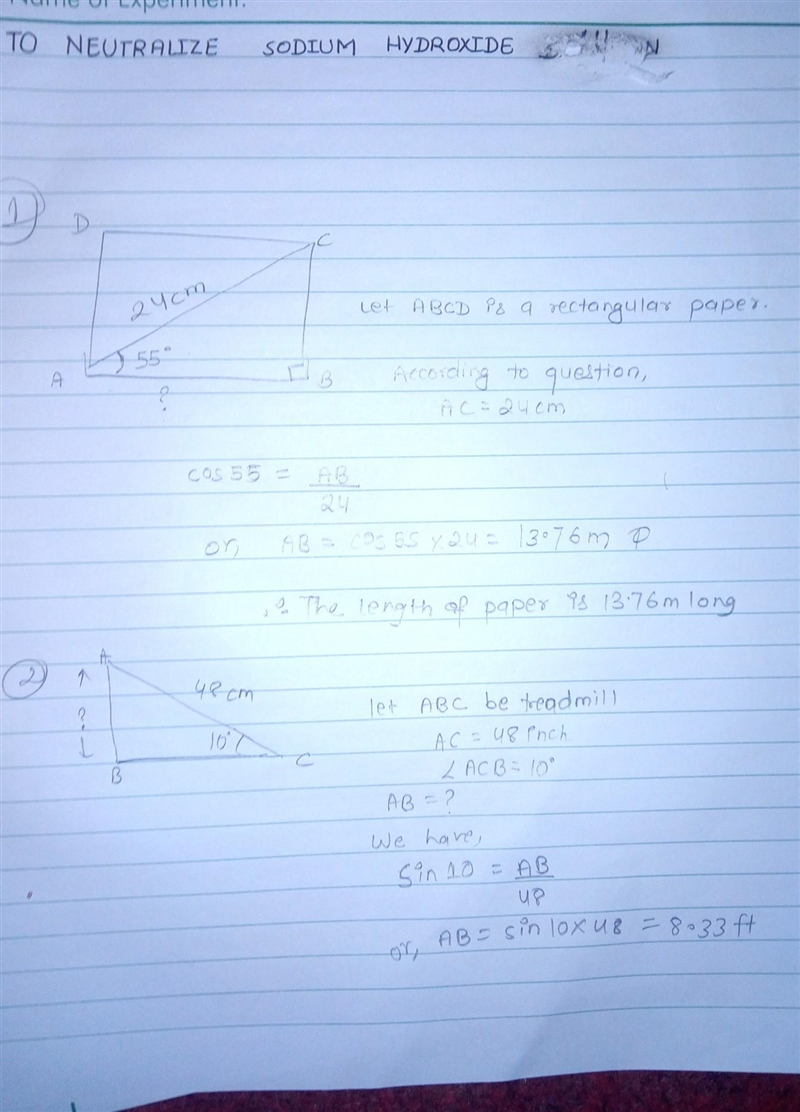 Name of Experiment:
TO NEUTRALIZE SODIUM HYDROXIDE
1)
D
C
24cm
Let ABCD is a rectangular paper.
55°
A
B
?
According to question,
AC = 24cm
cos 55 = AB
24
or, AB = cos 55 x 24 = 13.76m
∴ The length of paper is 13.76m long
2)
A
48cm
?
10°
B
C
let ABC be treadmill
AC = 48 inch
∠ACB = 10°
AB = ?
We have,
Sin 10 = AB
48
or, AB = sin 10 x 48 = 8.33 ft